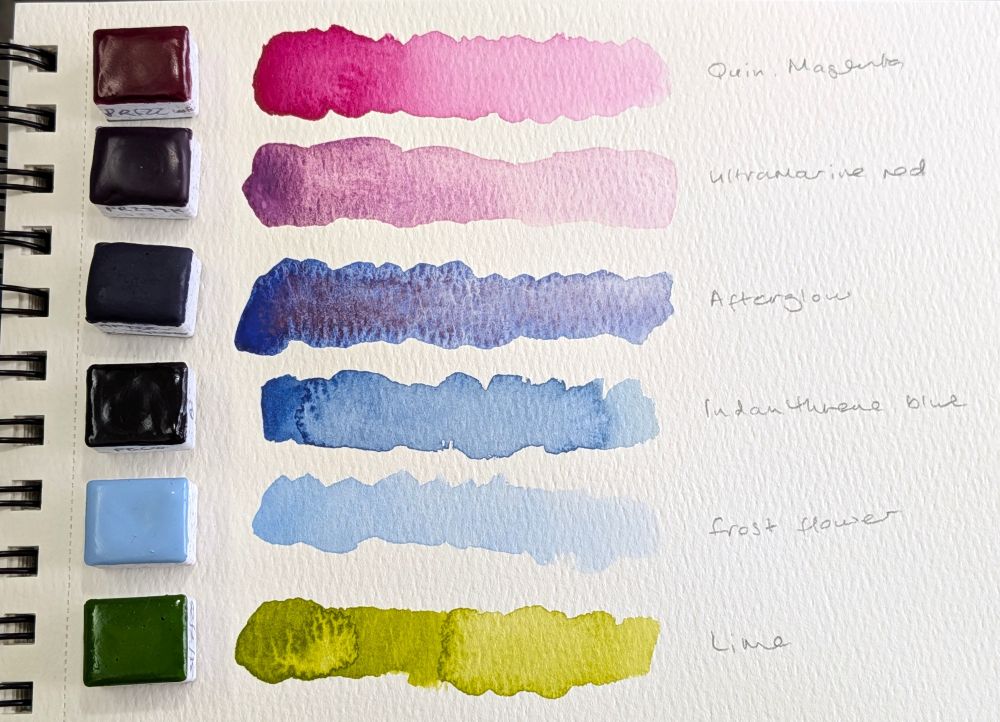 Quin. Magenta
Ultramarine red
Afterglow
Indanthrene blue
frost flower
Lime